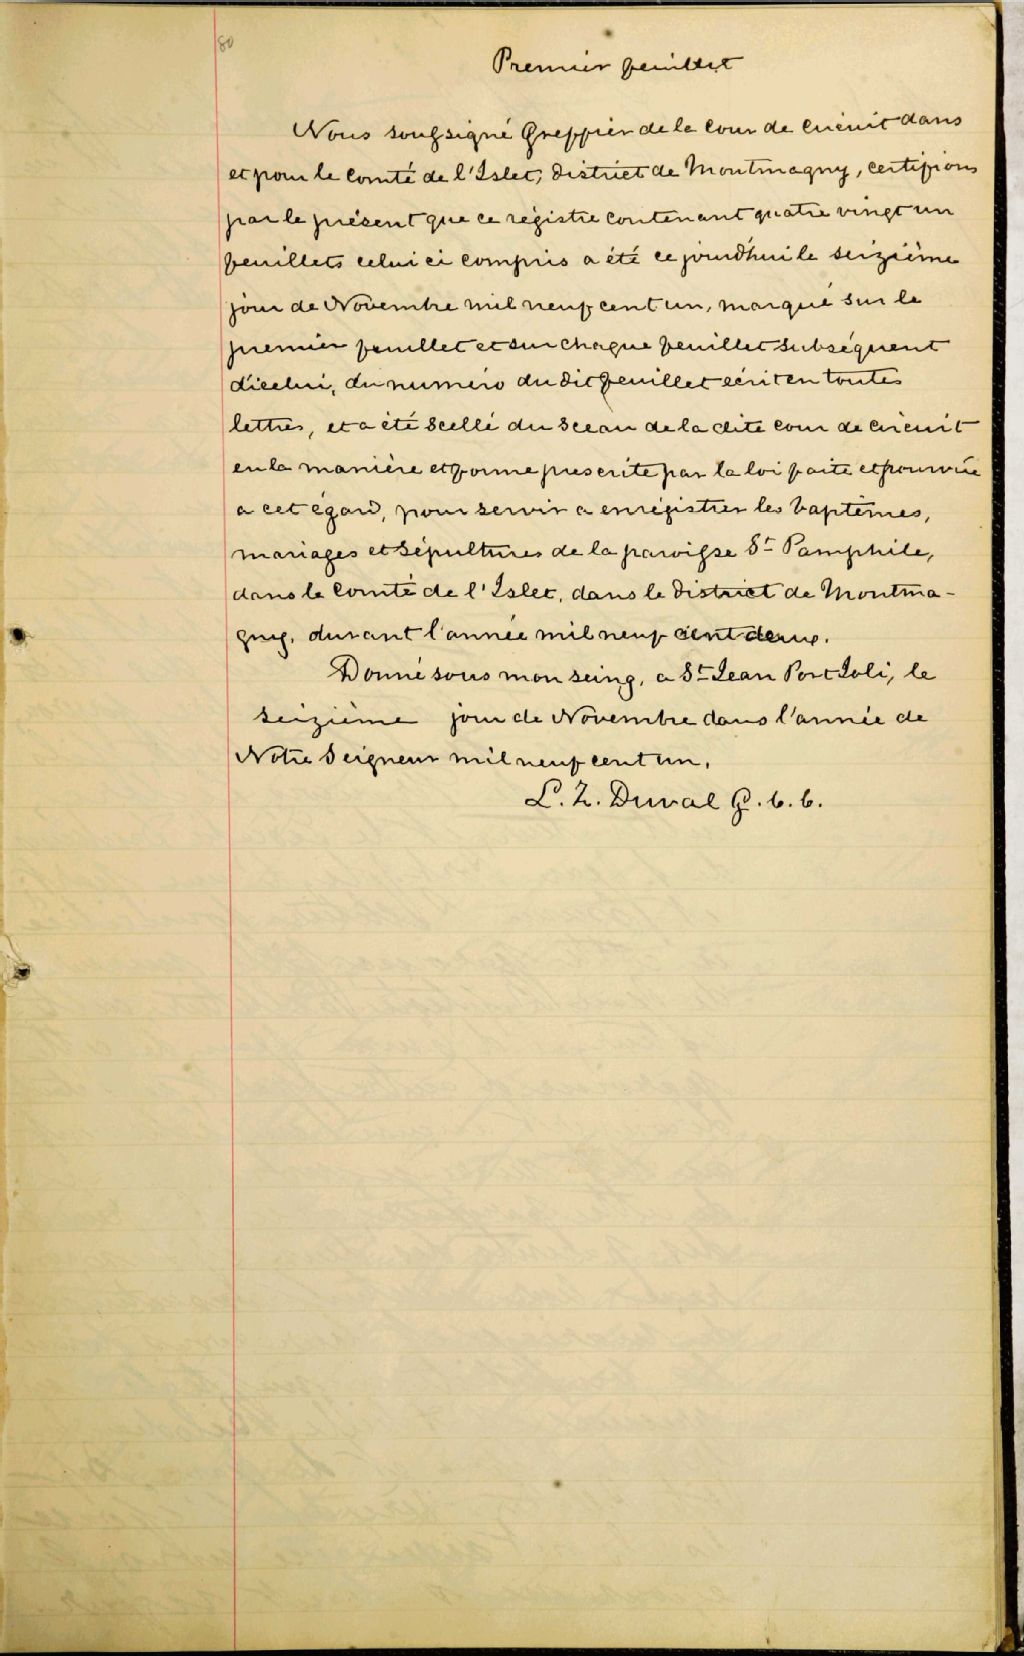 80
Premier feuillet
Nous soussigné Greffier de la cour de circuit dans
et pour le Comté de l'Islet, District de Montmagny, certifions
par le présent que ce régistre contenant quatre vingt un
feuillets celui ci compris a été ce jourd'hui le seizième
jour de Novembre mil neuf cent un, marqué sur le
premier feuillet et sur chaque feuillet subséquent
d'icelui, du numéro du dit feuillet écrit en toutes
lettres, et a été scellé du sceau de la dite cour de circuit
en la manière et forme prescrite par la loi faite et pourvue
a cet égard, pour servir a enrégistrer les baptêmes,
mariages et sépultures de la paroisse St Pamphile,
dans le Comté de l'Islet, dans le District de Montma-
gny, durant l'année mil neuf cent deux.
Donné sous mon seing, a St Jean Port Joli, le
seizième jour de Novembre dans l'année de
Notre Seigneur mil neuf cent un.
L. Z. Duval G. C. C.